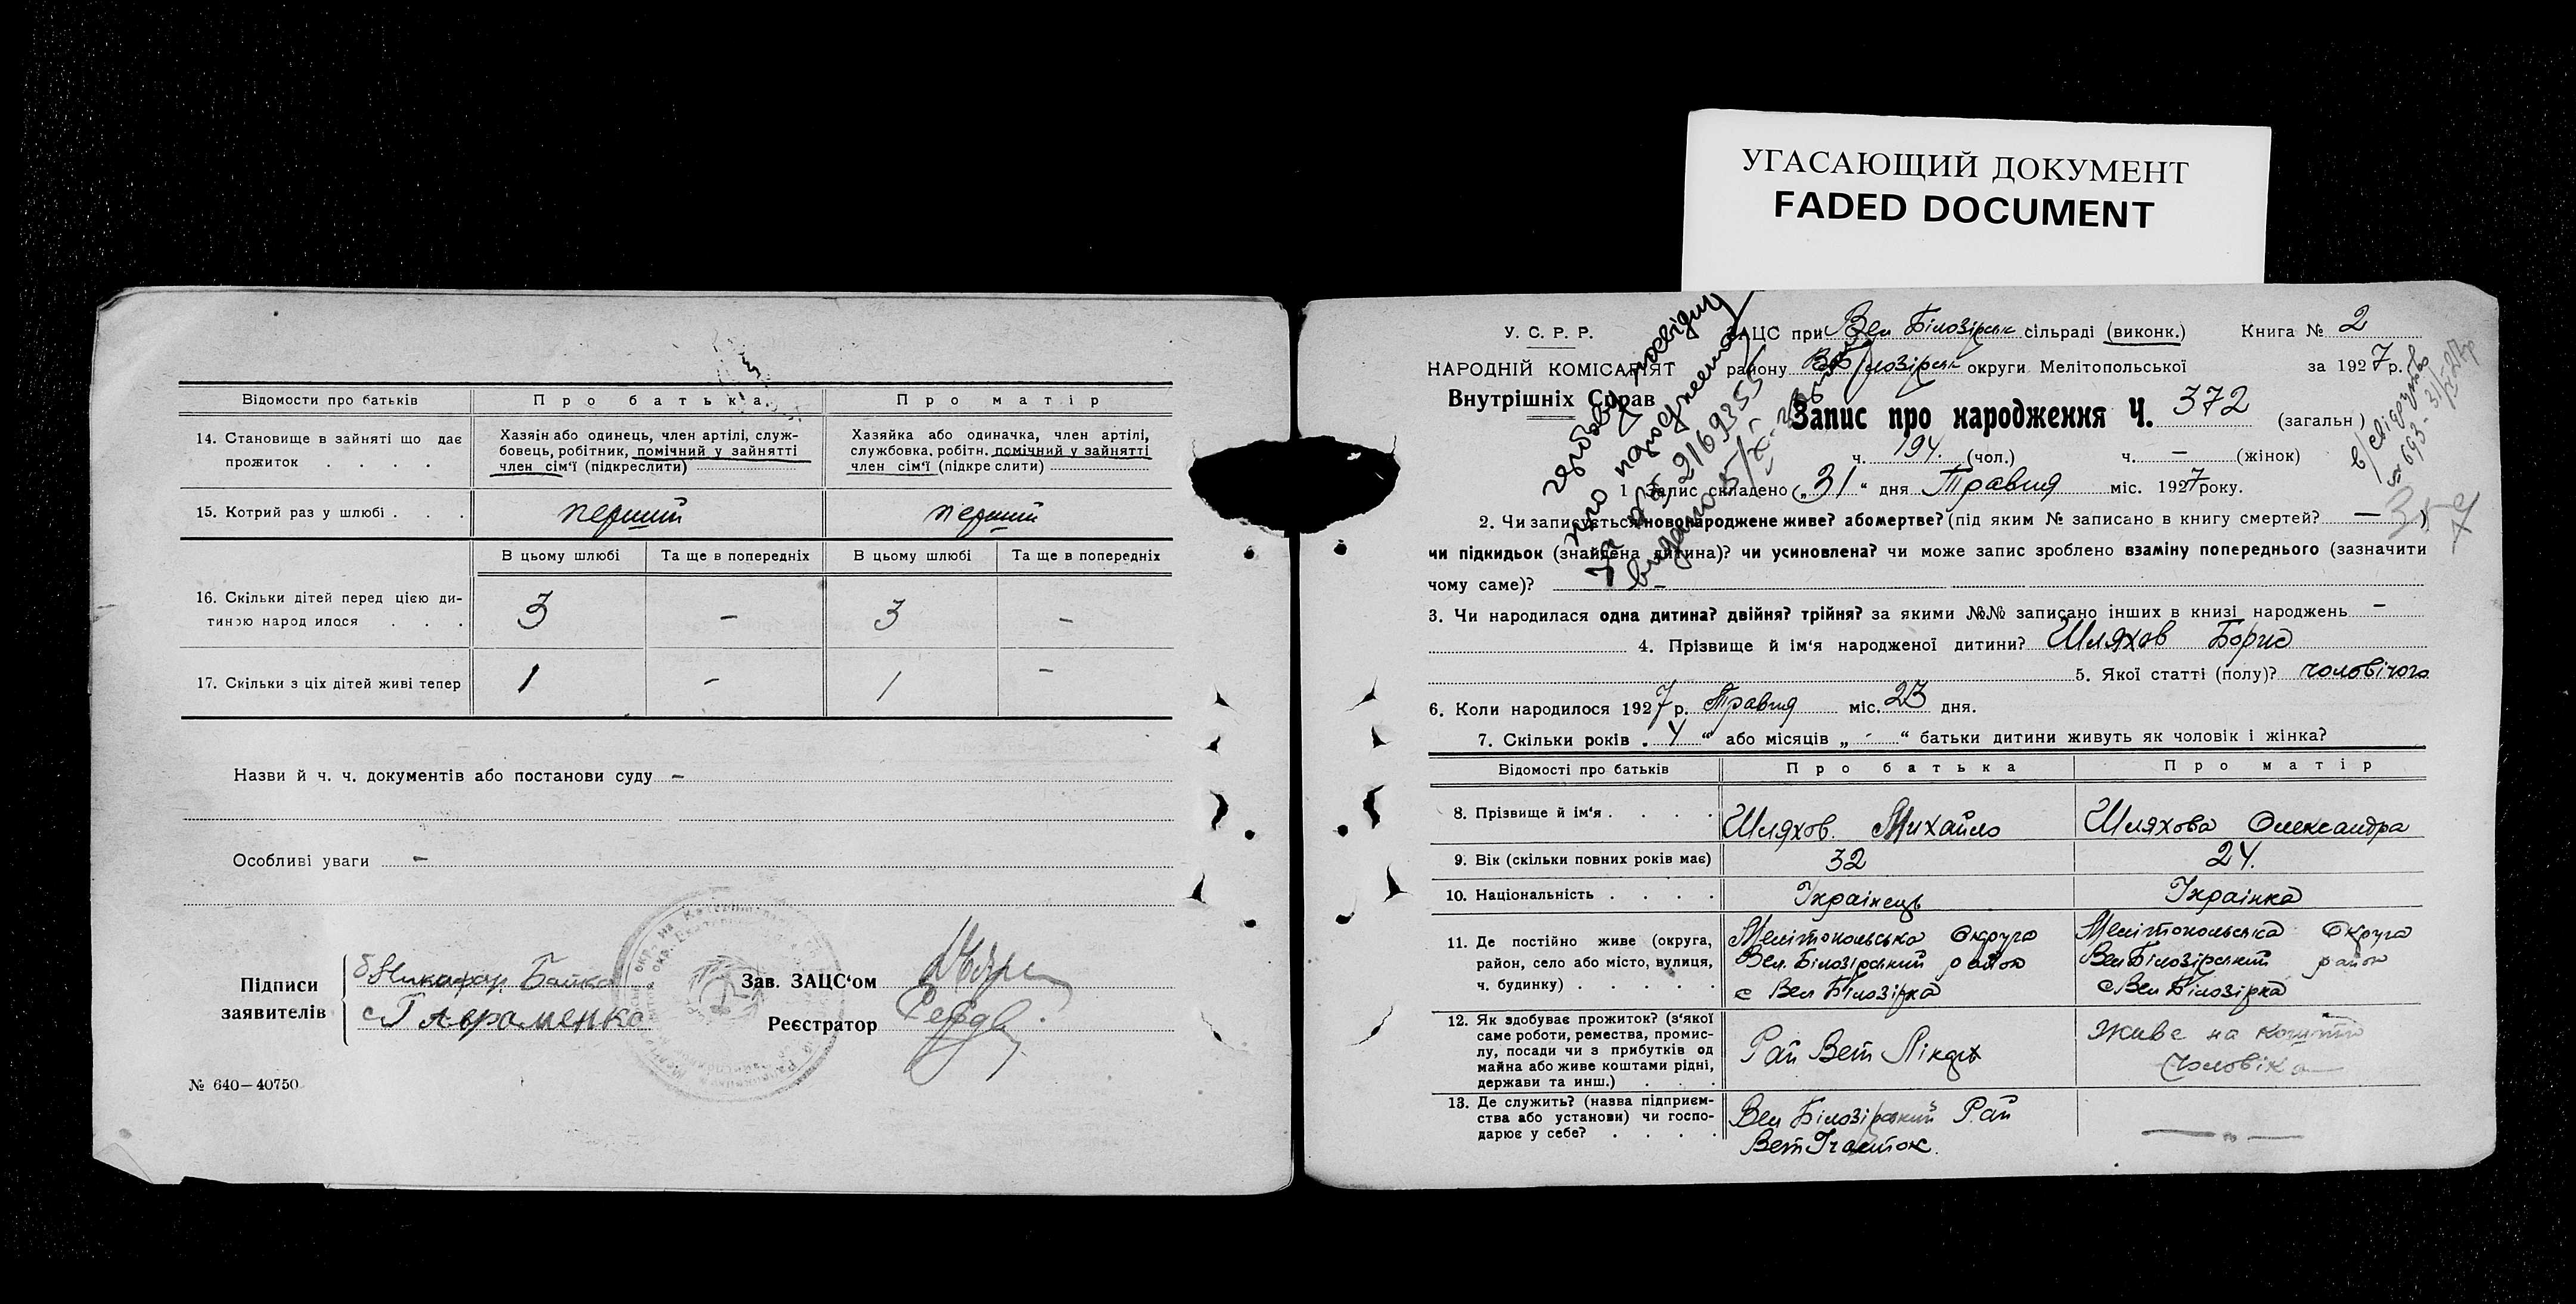 УГАСАЮЩИЙ ДОКУМЕНТ
FADED DOCUMENT
Відомости про батьків Про батька Про матір
14. Становище в зайняті що дає прожиток . . . .
Хазяін або одинець, член артілі, служ-
бовець, робітник, помічний у зайнятті
член сім'ї (підкреслити)
Хазяйка або одиначка, член артілі,
службовка, робітн. помічний у зайнятті
член сім'ї (підкреслити)
15. Котрий раз у шлюбі . . . перший перший
В цьому шлюбі Та ще в попередніх В цьому шлюбі Та ще в попередніх
16. Скільки дітей перед цією ди-
тиною народилося . . . 3 – 3 –
17. Скільки з ціх дітей живі тепер 1 – 1 –
Назви й ч. ч. документів або постанови суду –
Особливі уваги –
Підписи
заявителів
Байка
Авраменко
Зав. ЗАЦС'ом
Реєстратор
№ 640—40750
У. С. Р. Р.
НАРОДНІЙ КОМІСАРІЯТ
Внутрішніх Справ
ЗАЦС при Вел Білозірськ сільраді (виконк.) Книга № 2
району В Білозірськ округи Мелітопольської за 1927 р.
Запис про народження Ч. 372 (загальн)
ч. 194. (чол.) ч. – (жінок)
1 Запис складено „31" дня Травня міс. 1927 року.
2. Чи записується новонароджене живе? або мертве? (під яким № записано в книгу смертей? –)
чи підкидьок (знайдена дитина)? чи усиновлена? чи може запис зроблено взаміну попереднього (зазначити
чому саме)? –
3. Чи народилася одна дитина? двійня? трійня? за якими №№ записано інших в книзі народжень –
4. Прізвище й ім'я народженої дитини? Шляхов Борис
5. Якої статті (полу)? чоловічого
6. Коли народилося 1927 р. Травня міс. 23 дня.
7. Скільки років „4" або місяців „-" батьки дитини живуть як чоловік і жінка?
Відомості про батьків Про батька Про матір
8. Прізвище й ім'я . . . . Шляхов. Михайло Шляхова Олександра
9. Вік (скільки повних років має) 32 24.
10. Національність . . . . Українець Українка
11. Де постійно живе (округа,
район, село або місто, вулиця,
ч. будинку) . . . . .
Мелітопольська Округа
Вел. Білозірський район
с Вел Білозірка
Мелітопольська Округа
Вел Білозірський район
с Вел Білозірка
12. Як здобуває прожиток? (з'якої
саме роботи, ремества, промис-
лу, посади чи з прибутків од
майна або живе коштами рідні,
держави та инш.) . . .
Рай Вет Лікарь
Живе на кошти
чоловіка
13. Де служить? (назва підприєм-
ства або установи) чи госпо-
дарює у себе? . . . .
Вел Білозірський Рай
Вет Участок.
про народження
№ 2169355